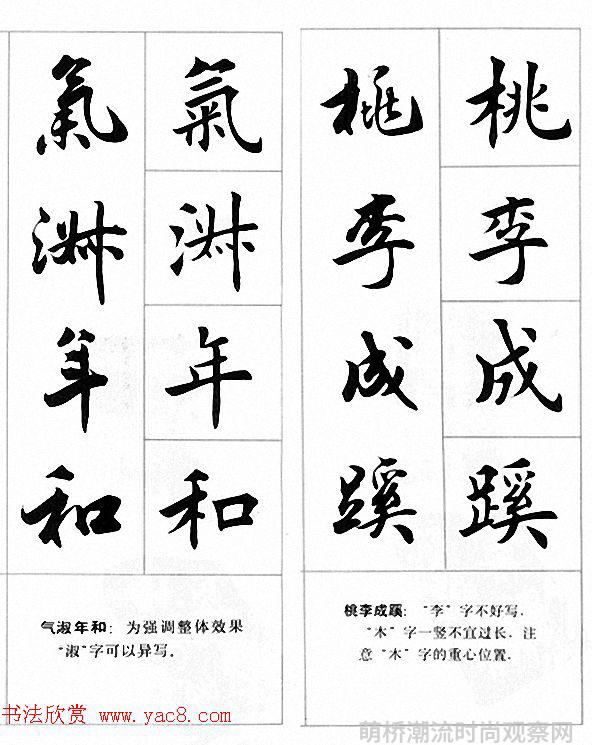 桃李成蹊
桃李成蹊
桃李成蹊：“李”字不好写．
“木”字一竖不宜过长．注
意“木”字的重心位置．
氣淑年和
氣淑年和
气淑年和：为强调整体效果
“淑”字可以异写．
书法欣赏 www.yac8.com
萌桥潮流时尚观察网